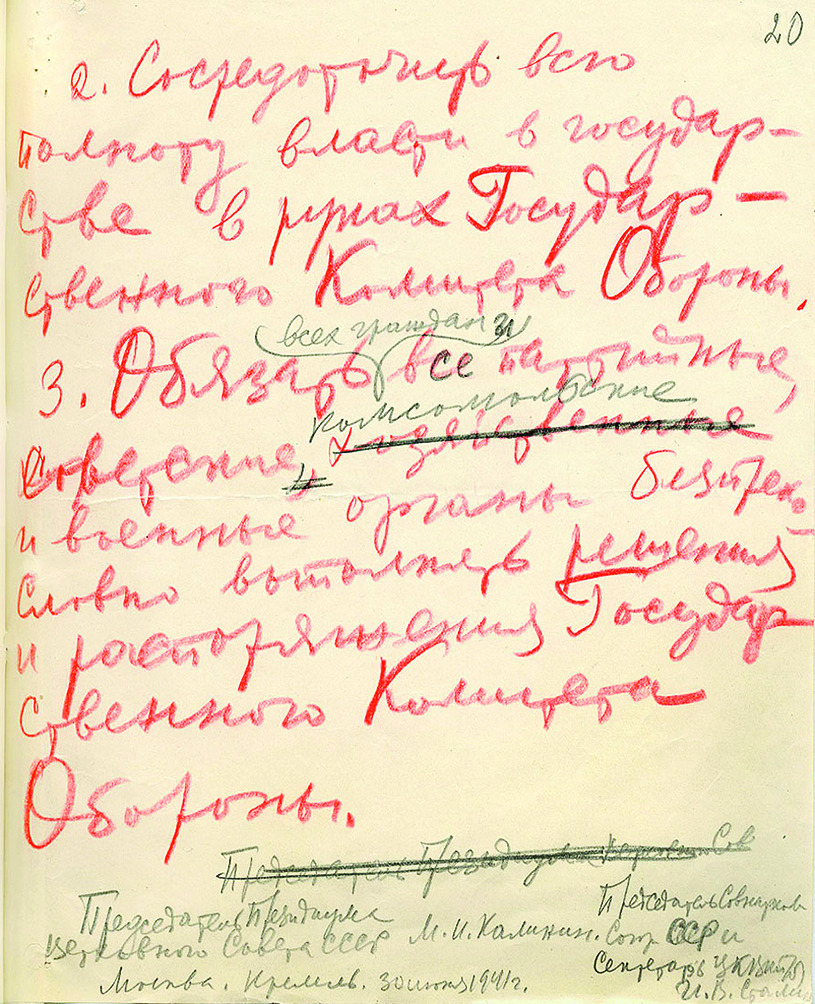 20
2. Сосредоточить всю
полноту власти в государ-
стве в руках Государ-
ственного Комитета Обороны.
всех граждан и
3. Обязать все партийные,
комсомольские
советские, хозяйственные
и военные органы беспреко-
словно выполнять решения
и распоряжения Государ
ственного Комитета
Обороны.
Председатель Президиума Верховн Сов
Председатель Президиума
Верховного Совета СССР М. И. Калинин.
Москва. Кремль. 30 июня 1941 г.
Председатель Совнаркома
Союза ССР и
Секретарь ЦК ВКП(б)
И. В. Сталин